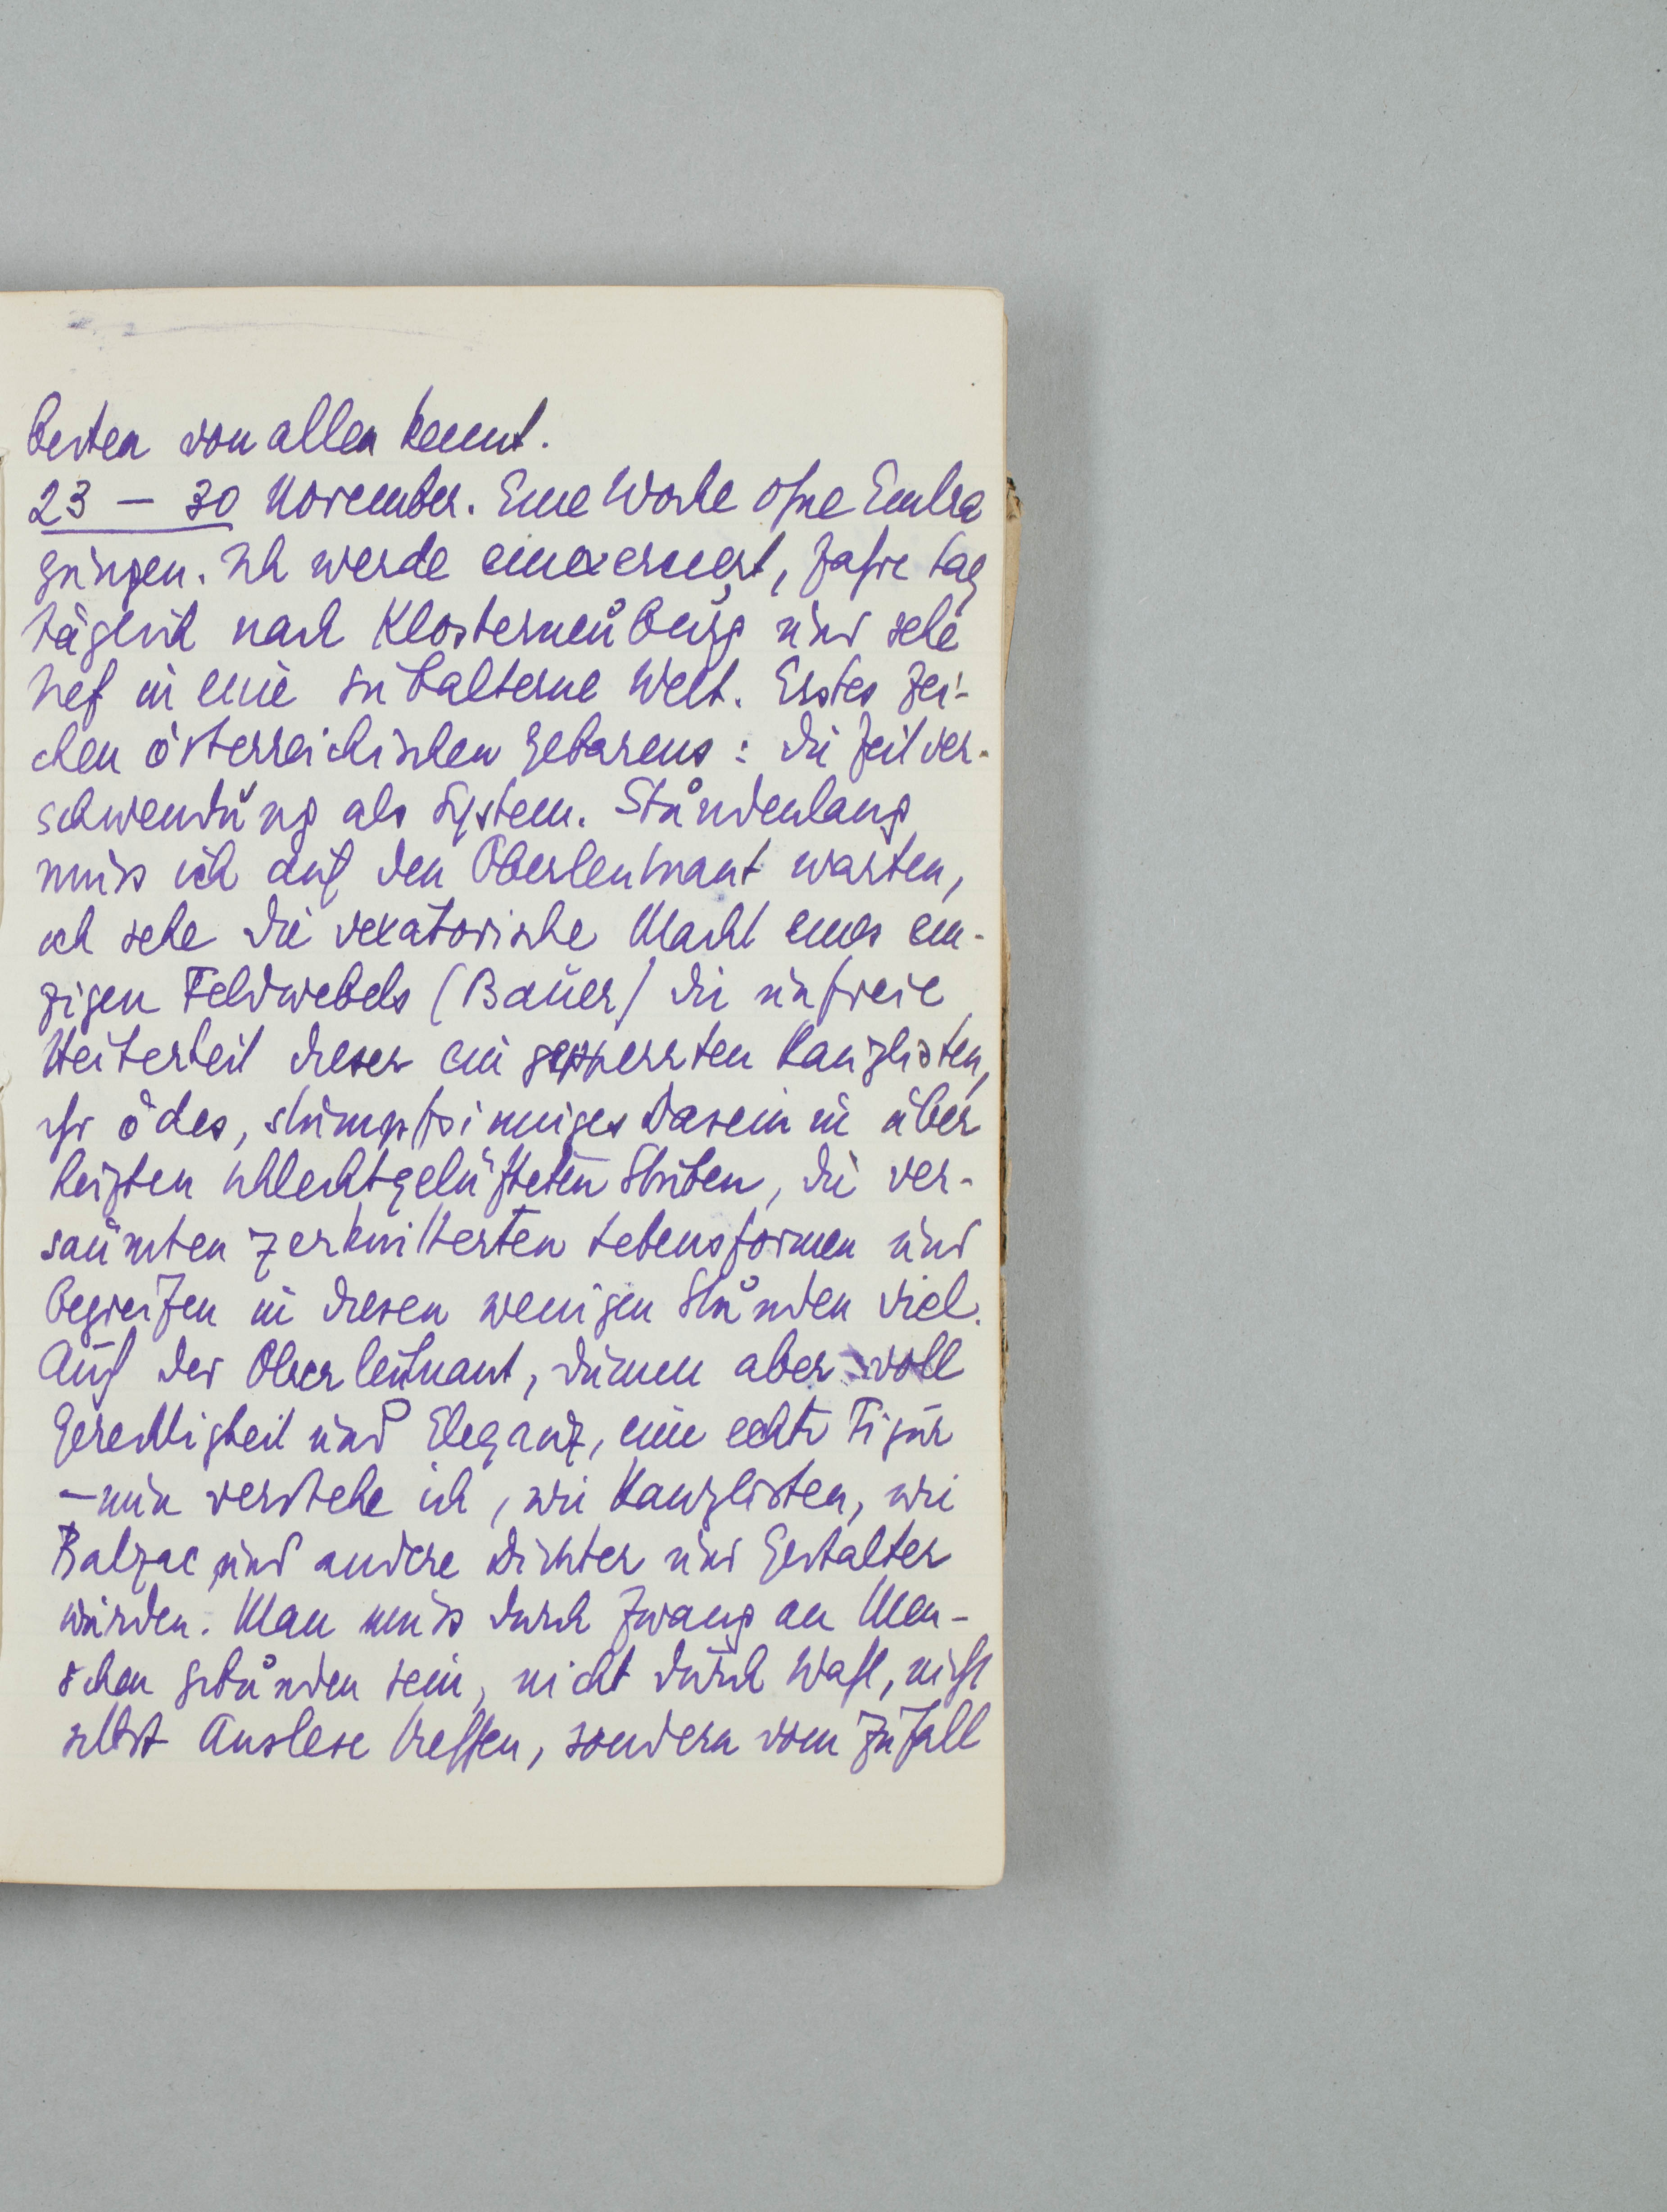 besten von allen kennt.
23 – 30 November. Eine Woche ohne Eintra
gungen. Ich werde einexerziert, fahre tag
täglich nach Klosterneuburg und sehe
tief in eine subalterne Welt. Erstes Zei-
chen österreichischen Gebarens: die Zeitver-
schwendung als System. Stundenlang
muss ich auf den Oberleutnant warten,
ich sehe die vexatorische Macht eines ein-
zigen Feldwebels (Bauer) die unfreie
Heiterkeit dieser eingesperrten Kanzlisten,
ihr ödes, stumpfsinniges Dasein in über
heizten schlechtgelüfteten Stuben, die ver-
säumten zerknitterten Lebensformen und
begreifen in diesen wenigen Stunden viel.
Auch der Oberleutnant, dumm aber voll
Gerechtigkeit und Eleganz, eine echte Figur
– nun verstehe ich, wie Kanzlisten, wie
Balzac und andere Dichter und Gestalter
wurden. Man muss durch Zwang an Men-
schen gebunden sein, nicht durch Wahl, nicht
selbst Auslese treffen, sondern vom Zufall